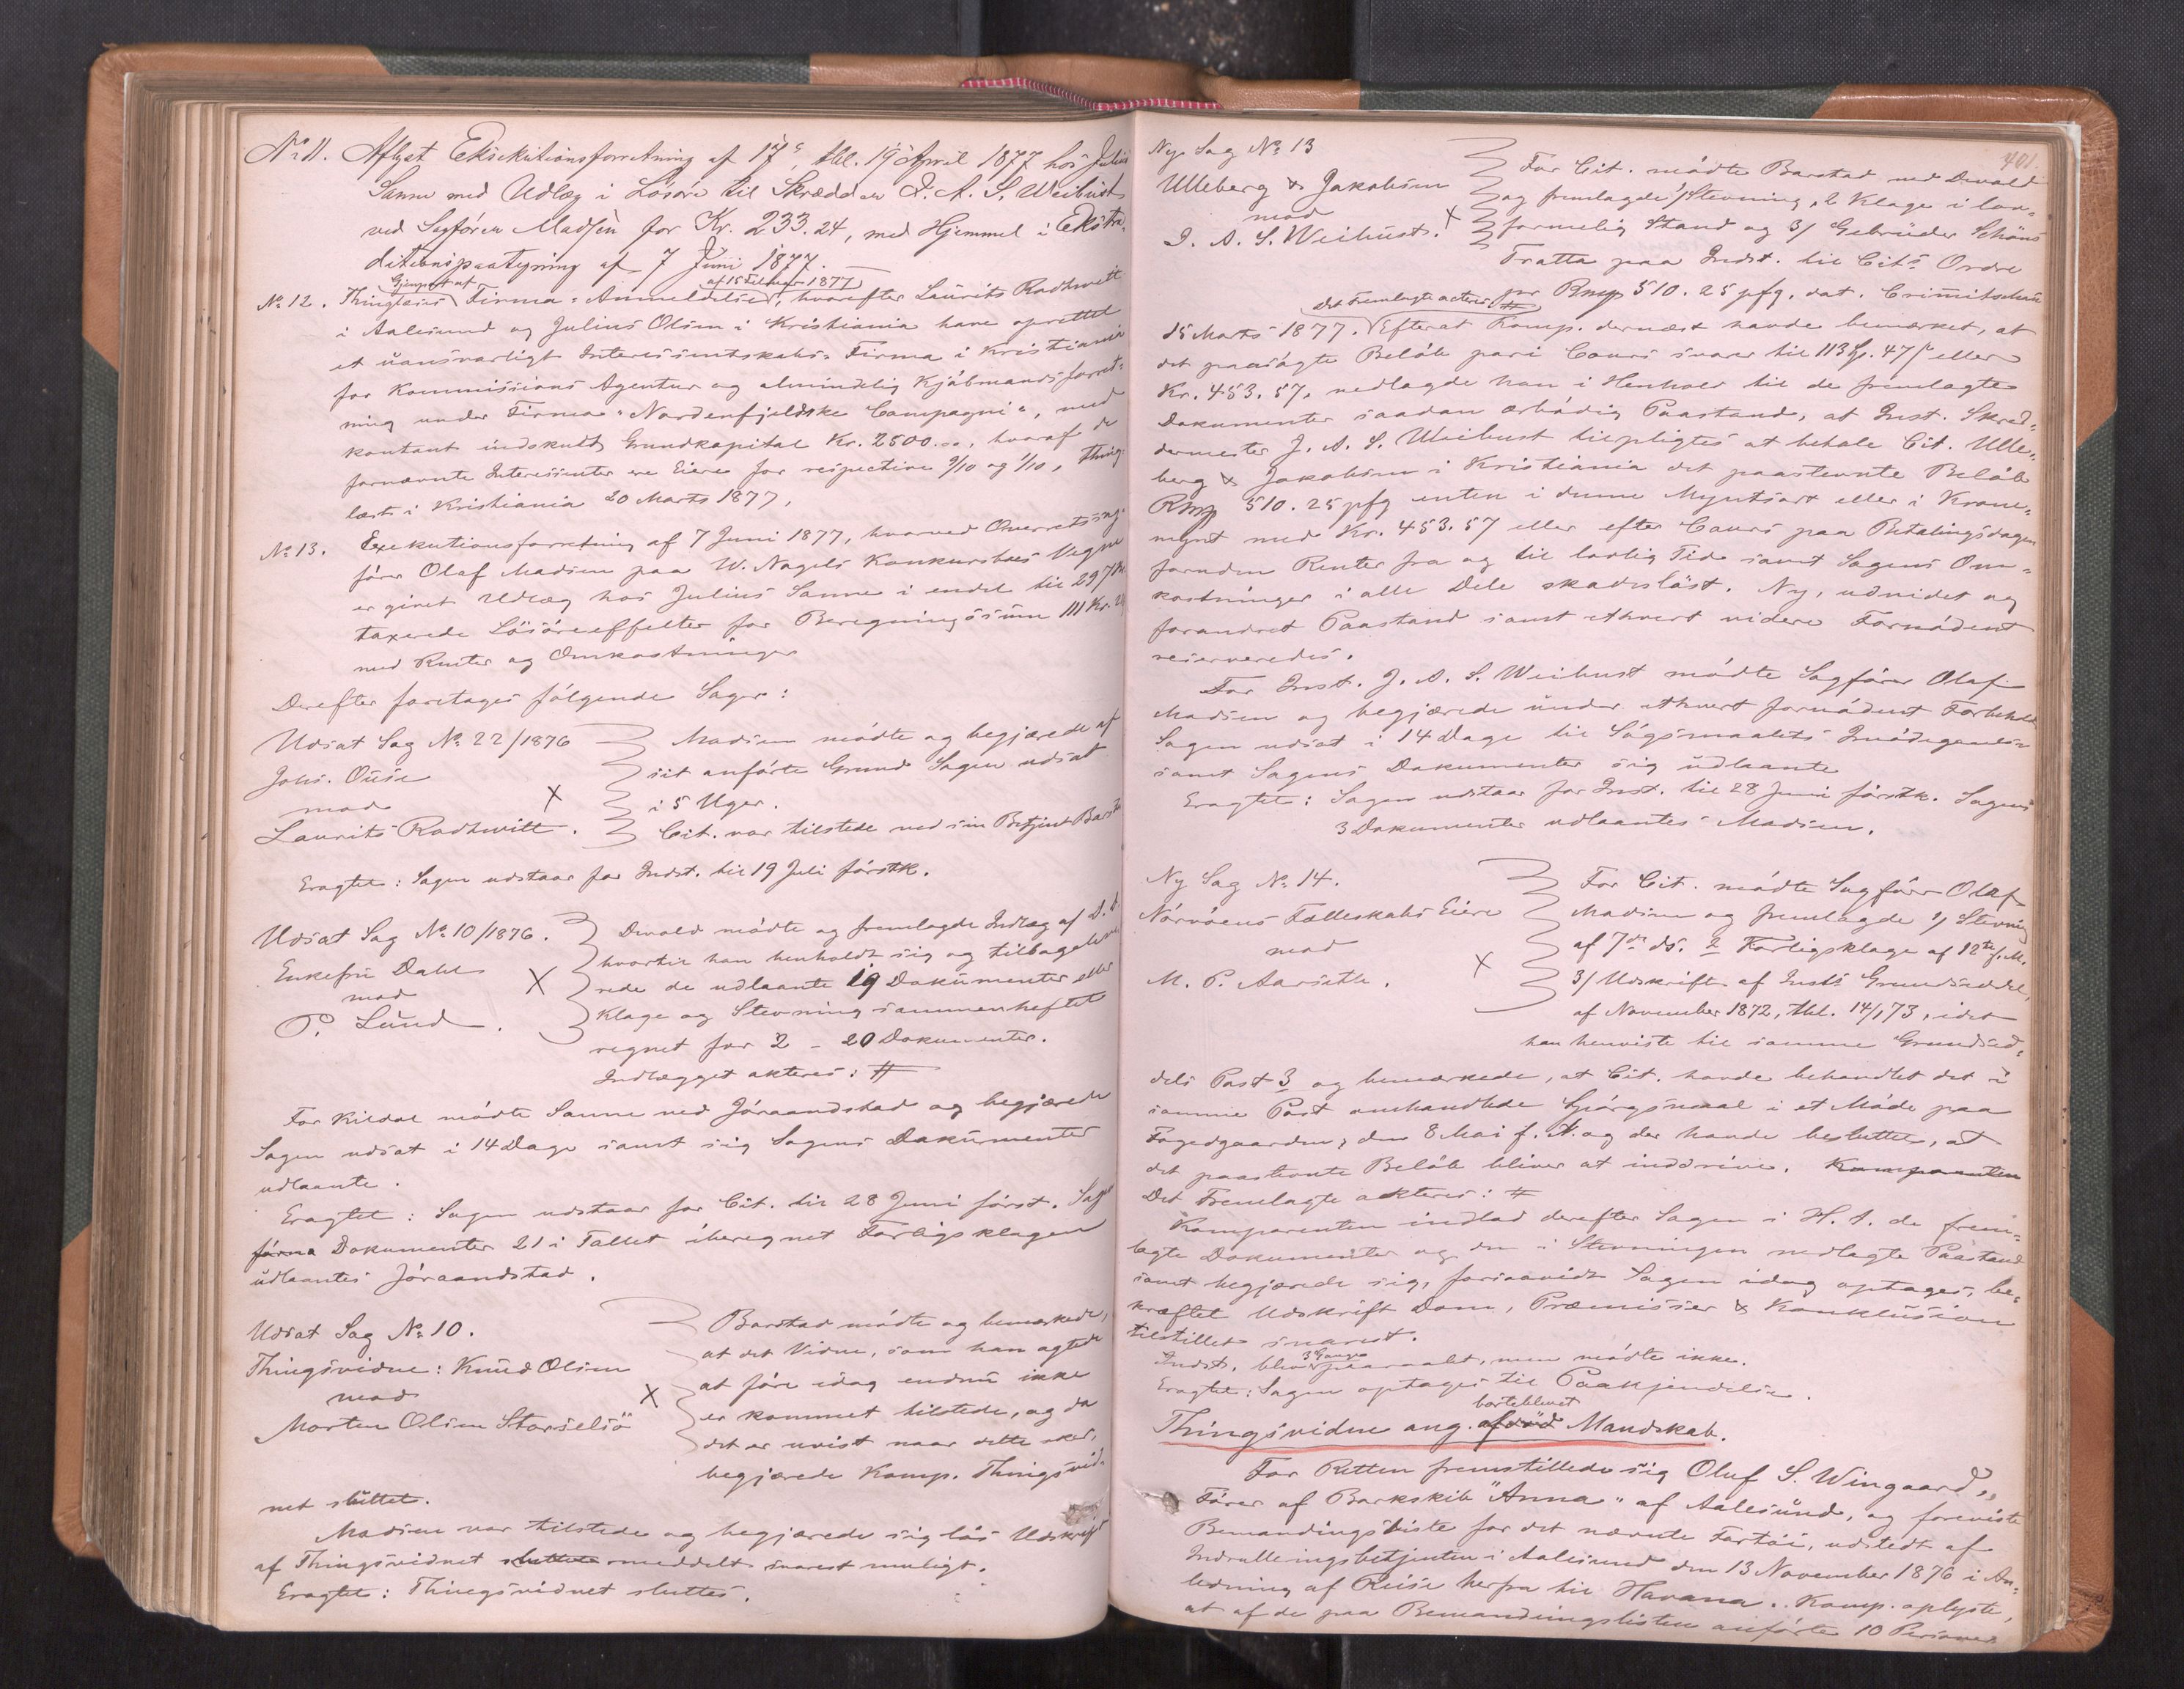 No 11. Aflyst Eksekutionsforretning af 17de, thl. 19 April 1877 hos Julius
Sanne med Udlæg i Løsøre til Skrædder I. A. S. Weibust
ved Sagfører Madsen for Kr. 233.24, med Hjemmel i Ekstra-
ditionspaategning af 7 Juni 1877.
Gjenpart af af 15 Februar 1877
No 12. Thinglæses Firma-Anmeldelse, hvorefter Laurits Rodhwitt
i Aalesund og Julius Olsen i Kristiania have oprettet
et uansvarligt Interessentskabs-Firma i Kristiania
for Kommissions Agentur og almindelig Kjøbmandsforret-
ning under Firma "Nordenfjeldske Compagni", med
kontant indskudt Grundkapital Kr. 2500.00, hvoraf de
fornævnte Interessenter ere Eiere for respective 9/10 og 1/10, thing-
læst i Kristiania 20 Marts 1877.
No 13. Exekutionsforretning af 7 Juni 1877, hvorved Overretssag-
fører Olaf Madsen paa W. Nagels Konkursboes Vegne
er givet Udlæg hos Julius Sanne i endel til 297 Kr.
taxerede Løsøreeffekter for Beregningssum 111 Kr. 24
med Renter og Omkostninger
Derefter foretages følgende Sager:
Udsat Sag No 22/1876
Johs. Ouse
mod
Laurits Rodhwitt.
Madsen mødte og begjærede af
sit anførte Grund Sagen udsat
i 5 Uger.
Cit. var tilstede ved sin Betjent Barstad
Eragtet: Sagen udstaar for Indst. til 19 Juli førstk.
Udsat Sag No 10/1876.
Enkefru Dahl
mod
P. Lund.
Devold mødte og fremlagde Indlæg af D. D.
hvortil han henholdt sig og tilbageleve
rede de udlaante 19 Dokumenter eller
Klage og Stevning sammenheftet
regnet for 2 - 20 Dokumenter.
Indlægget akteres: #
For Kildal mødte Sanne ved Jøraandstad og begjærede
Sagen udsat i 14 Dage samt sig Sagens Dokumenter
udlaante.
Eragtet: Sagen udstaar for Cit. til 28 Juni først. Sagens
Dokumenter 21 i Tallet iberegnet Forligsklagen
udlaantes Jøraandstad.
Udsat Sag No 10.
Thingsvidne: Knud Olsen
mod
Morten Olsen Storselsö
Barstad mødte og bemærkede,
at det Vidne, som han agtede
at føre idag endnu ikke
er kommet tilstede, og da
det er uvist naar dette sker,
begjærede Komp. Thingsvid-
net sluttet.
Madsen var tilstede og begjærede sig løs Udskrift
af Thingsvidnet sluttet meddelt snarest muligt.
Eragtet: Thingsvidnet sluttes.
401.
Ny Sag No 13
Ulleberg & Jakobsen
mod
I. A. S. Weibust.
For Cit. mødte Barstad ved Devold
og fremlagde 1/ Stevning, 2 Klage i lov-
formelig Stand og 3/ Gebrüder Schöns
Tratta paa Indst. til Cits Ordre
pr Rmp 510.25 pfg. dat. Crimitschau
det Fremlagte acteres #
15 Marts 1877. Efterat Komp. dernæst havde bemærket, at
det paasøgte Beløb pari Cours svarer til 113 Sp. 47 s eller
Kr. 453.57, nedlagde han i Henhold til de fremlagte
Dokumenter saadan ærbødig Paastand, at Inst. Skræd-
dermester J. A. S. Weibust tilpligtes at betale Cit. Ulle-
berg & Jakobsen i Kristiania det paastevnte Beløb
Rmp 510.25 pfg enten i denne Myntsort eller i Krone-
mynt med Kr. 453.57 eller efter Cours paa Betalingsdagen
foruden Renter fra og til lovlig Tid samt Sagens Om-
kostninger i alle Dele skadesløst. Ny, udvidet og
forandret Paastand samt ethvert videre Fornødent
reserveredes.
For Inst. J. A. S. Weibust mødte Sagfører Olaf
Madsen og begjærede under ethvert fornødent Forbehold
Sagen udsat i 14 Dage til Søgsmaalets Imødegaaelse
samt Sagens Dokumenter sig udlaante
Eragtet: Sagen udstaar for Inst. til 28 Juni førstk. Sagens
3 Dokumenter udlaantes Madsen.
Ny Sag No 14.
Nørvøens Fælleskabs Eiere
mod
M. P. Aarseth.
For Cit. mødte Sagfører Olaf
Madsen og fremlagde 1/ Stevning
af 7de ds. 2 Forligsklage af 12te f. M.
3/ Udskrift af Insts Grundseddel,
af November 1872, thl. 14/1 73, idet
han henviste til samme Grundsed-
dels Post 3 og bemærkede, at Cit. havde behandlet det i
samme Post omhandlede Spørgsmaal i et Møde paa
Fogedgaarden, den 8 Mai f. A. og der havde besluttet, at
det paastevnte Beløb bliver at inddrive. Komparenten
Det Fremlagte akteres: #
Komparenten indlod derefter Sagen i H. t. de frem-
lagte Dokumenter og den i Stevningen nedlagte Paastand
samt begjærede sig, forsaavidt Sagen idag optages, be-
kræftet Udskrift Dom, Præmisser & Konklusion
tilstillet snarest.
3 Gange
Indst. blev paaraabt, men mødte ikke.
Eragtet: Sagen optages til Paakjendelse.
borteblevet
Thingsvidne ang. afdød Mandskab.
For Retten fremstillede sig Oluf S. Wingaard,
Fører af Barkskib "Anna" af Aalesund, og foreviste
Bemandingsliste for det nævnte Fartøi, udstedt af
Indrulleringsbetjenten i Aalesund den 13 November 1876 i An-
ledning af Reise herfra til Havana. Komp. oplyste,
at af de paa Bemandingslisten anførte 10 Personer